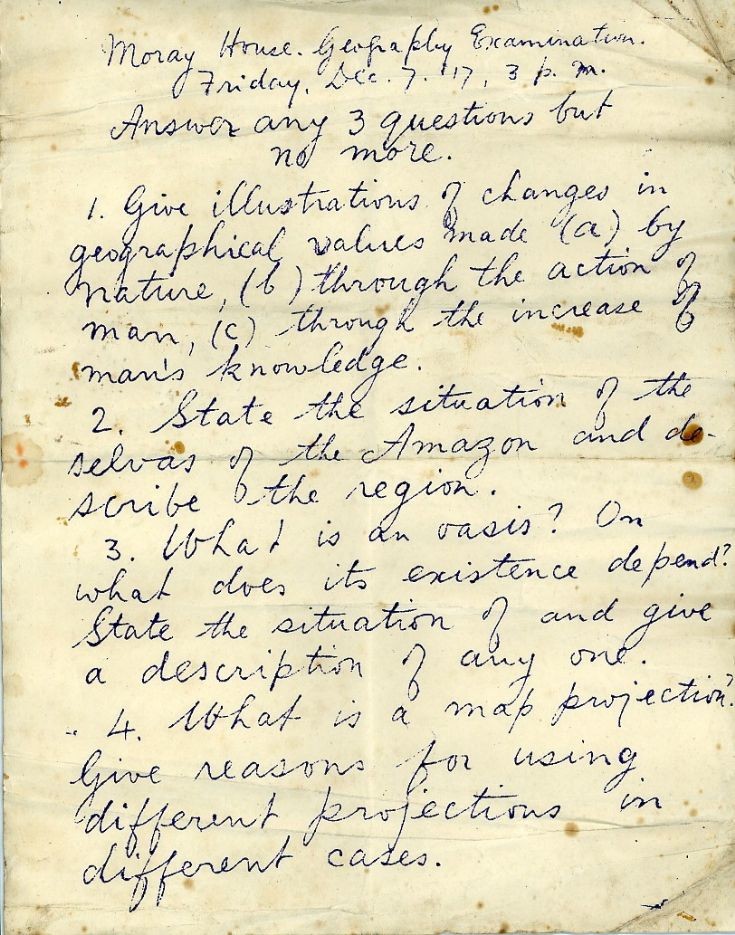 Moray House. Geography Examination.
Friday, Dec. 7. '17, 3 p.m.
Answer any 3 questions but
no more.
1. Give illustrations of changes in
geographical values made (a) by
nature, (b) through the action of
man, (c) through the increase of
man's knowledge.
2. State the situation of the
selvas of the Amazon and de-
scribe the region.
3. What is an oasis? On
what does its existence depend?
State the situation of and give
a description of any one.
4. What is a map projection?
Give reasons for using
different projections in
different cases.